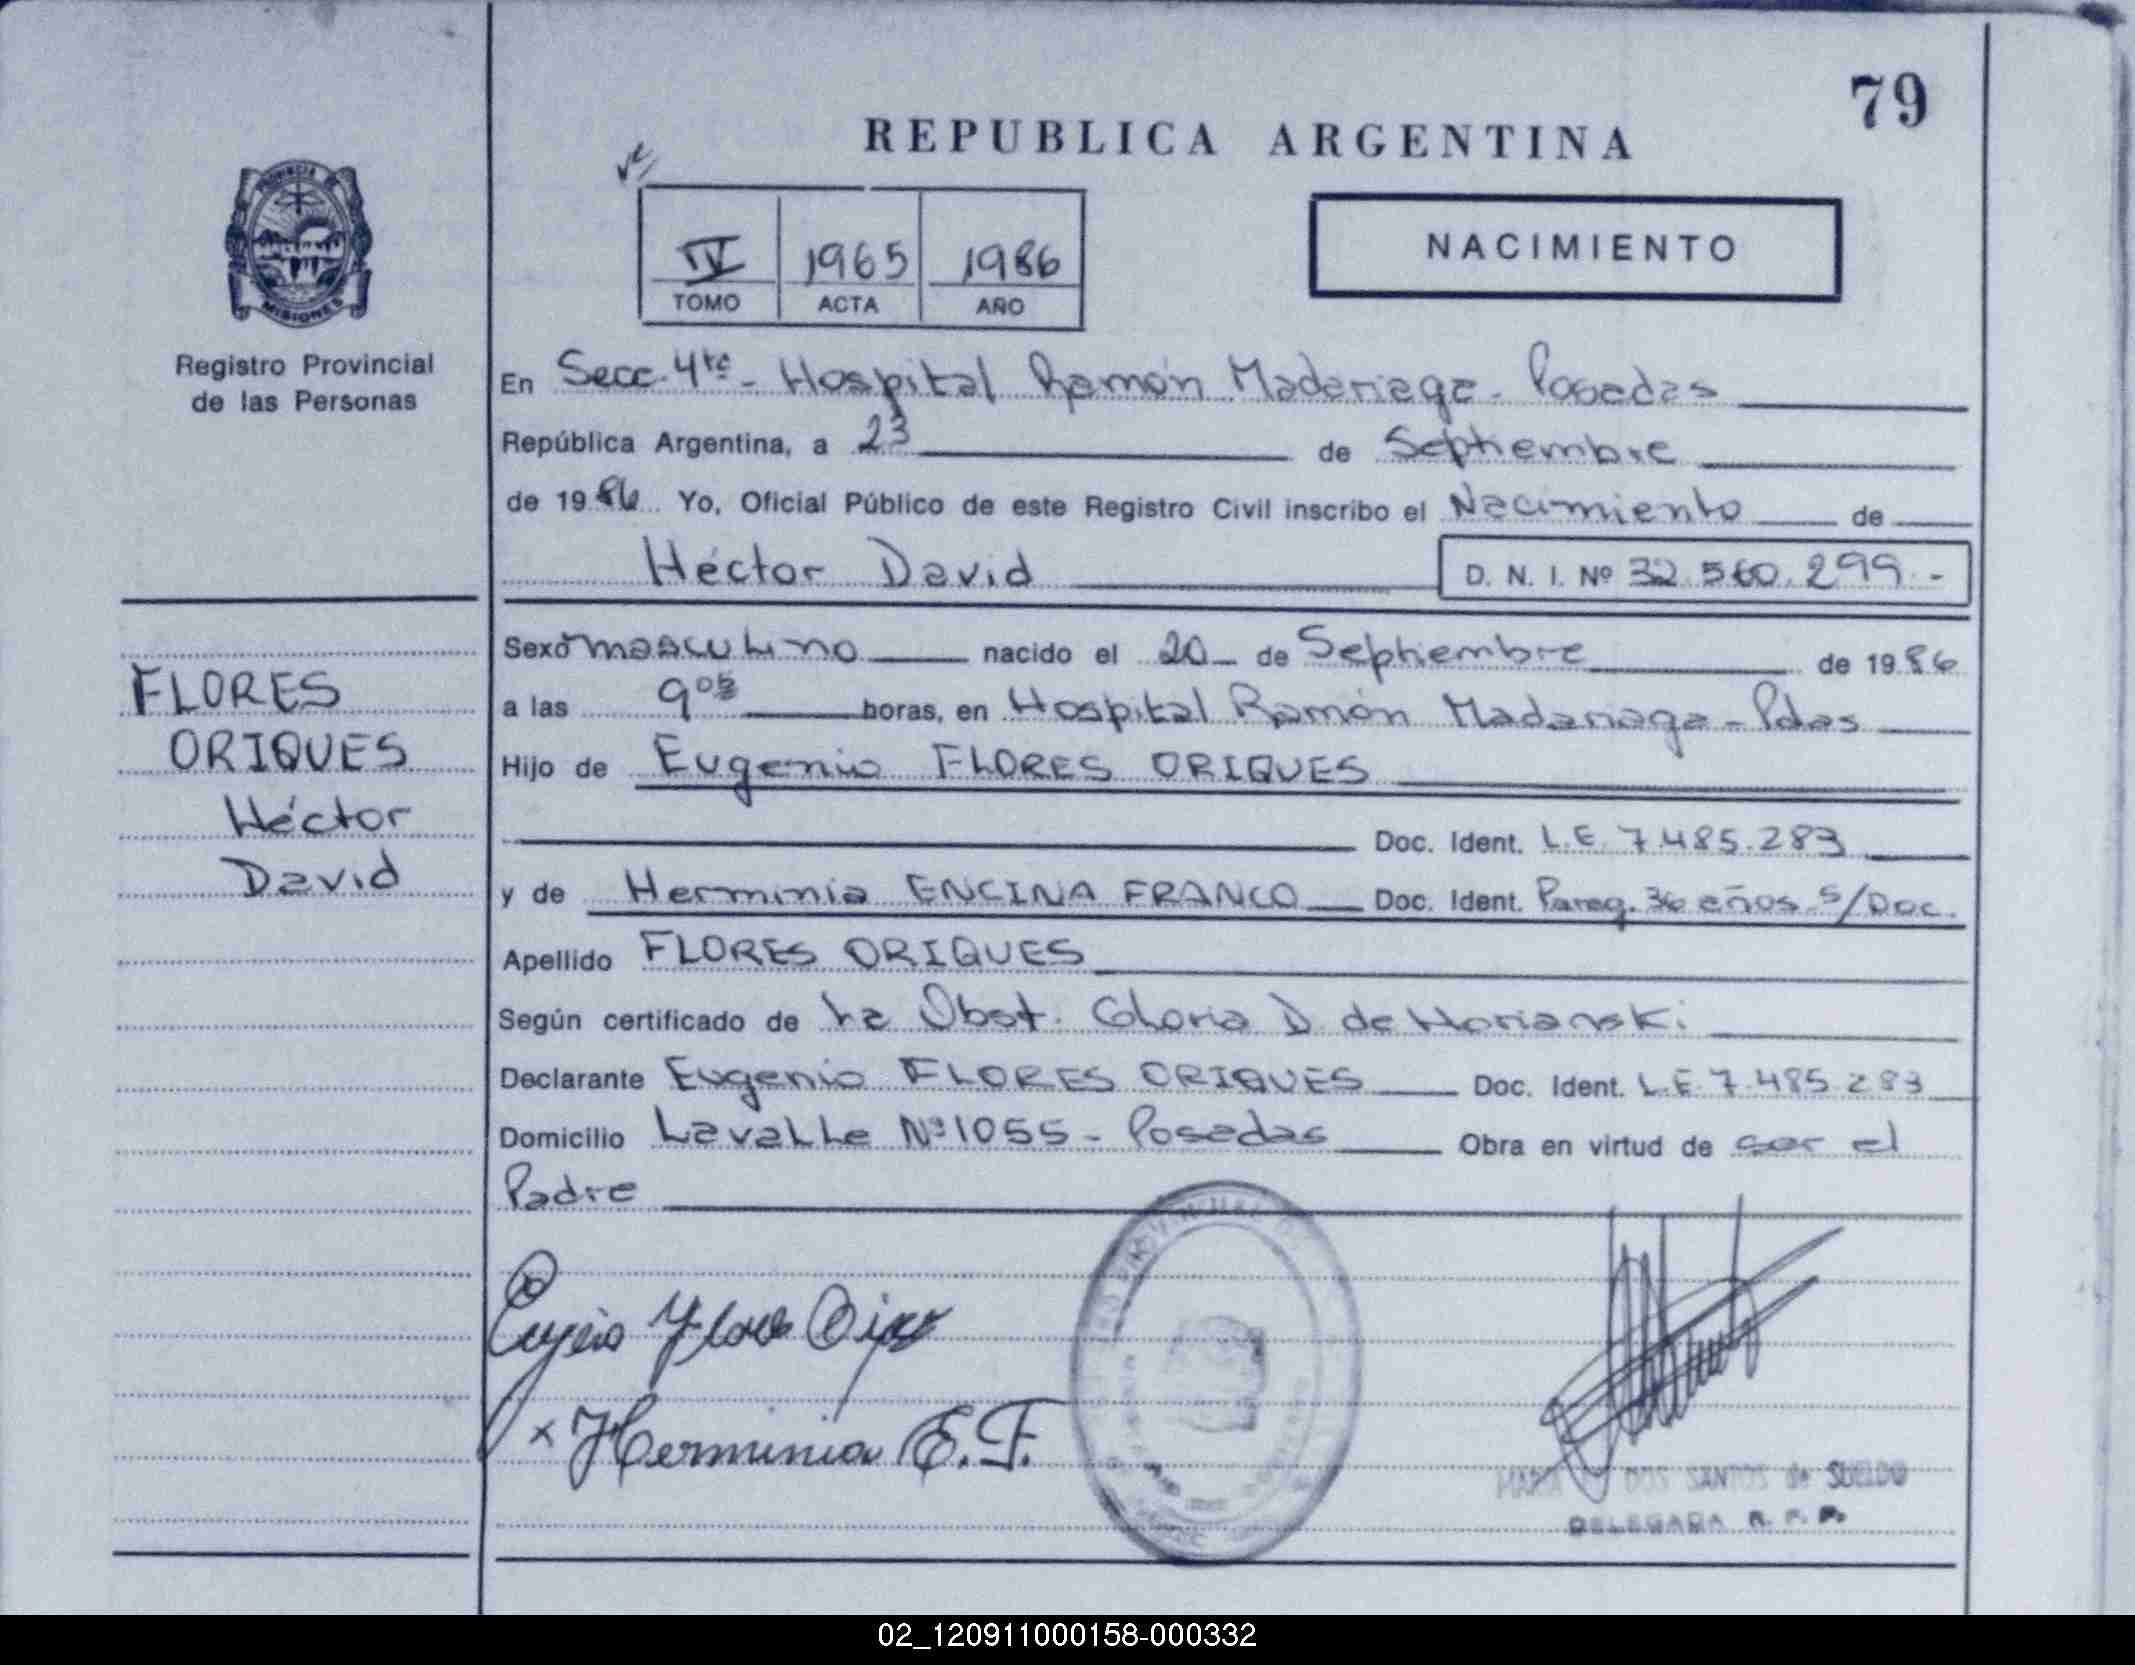 79
REPUBLICA ARGENTINA
NACIMIENTO
IV 1965 1986
TOMO ACTA AÑO
PROVINCIA DE
MISIONES
Registro Provincial
de las Personas
En Secc. 4ta - Hospital Ramón Madariaga - Posadas
República Argentina, a 23 de Septiembre
de 1986 Yo, Oficial Público de este Registro Civil inscribo el Nacimiento de
Héctor David D. N. I. Nº 32.560.299.-
FLORES
ORIQUES
Héctor
David
Sexo masculino nacido el 20 de Septiembre de 1986
a las 9 05 horas, en Hospital Ramón Madariaga - Pdas
Hijo de Eugenio FLORES ORIQUES
Doc. Ident. L.E. 7.485.283
y de Herminia ENCINA FRANCO Doc. Ident. Parag. 36 años s/Doc.
Apellido FLORES ORIQUES
Según certificado de la Obst. Gloria D. de Horianski
Declarante Eugenio FLORES ORIQUES Doc. Ident. L.E. 7.485.283
Domicilio Lavalle Nº 1055 - Posadas Obra en virtud de ser el
Padre
Eugenio Flores
x Herminia E. F.
MARIA DOS SANTOS de SUELDO
DELEGADA R. P. P.
02_120911000158-000332